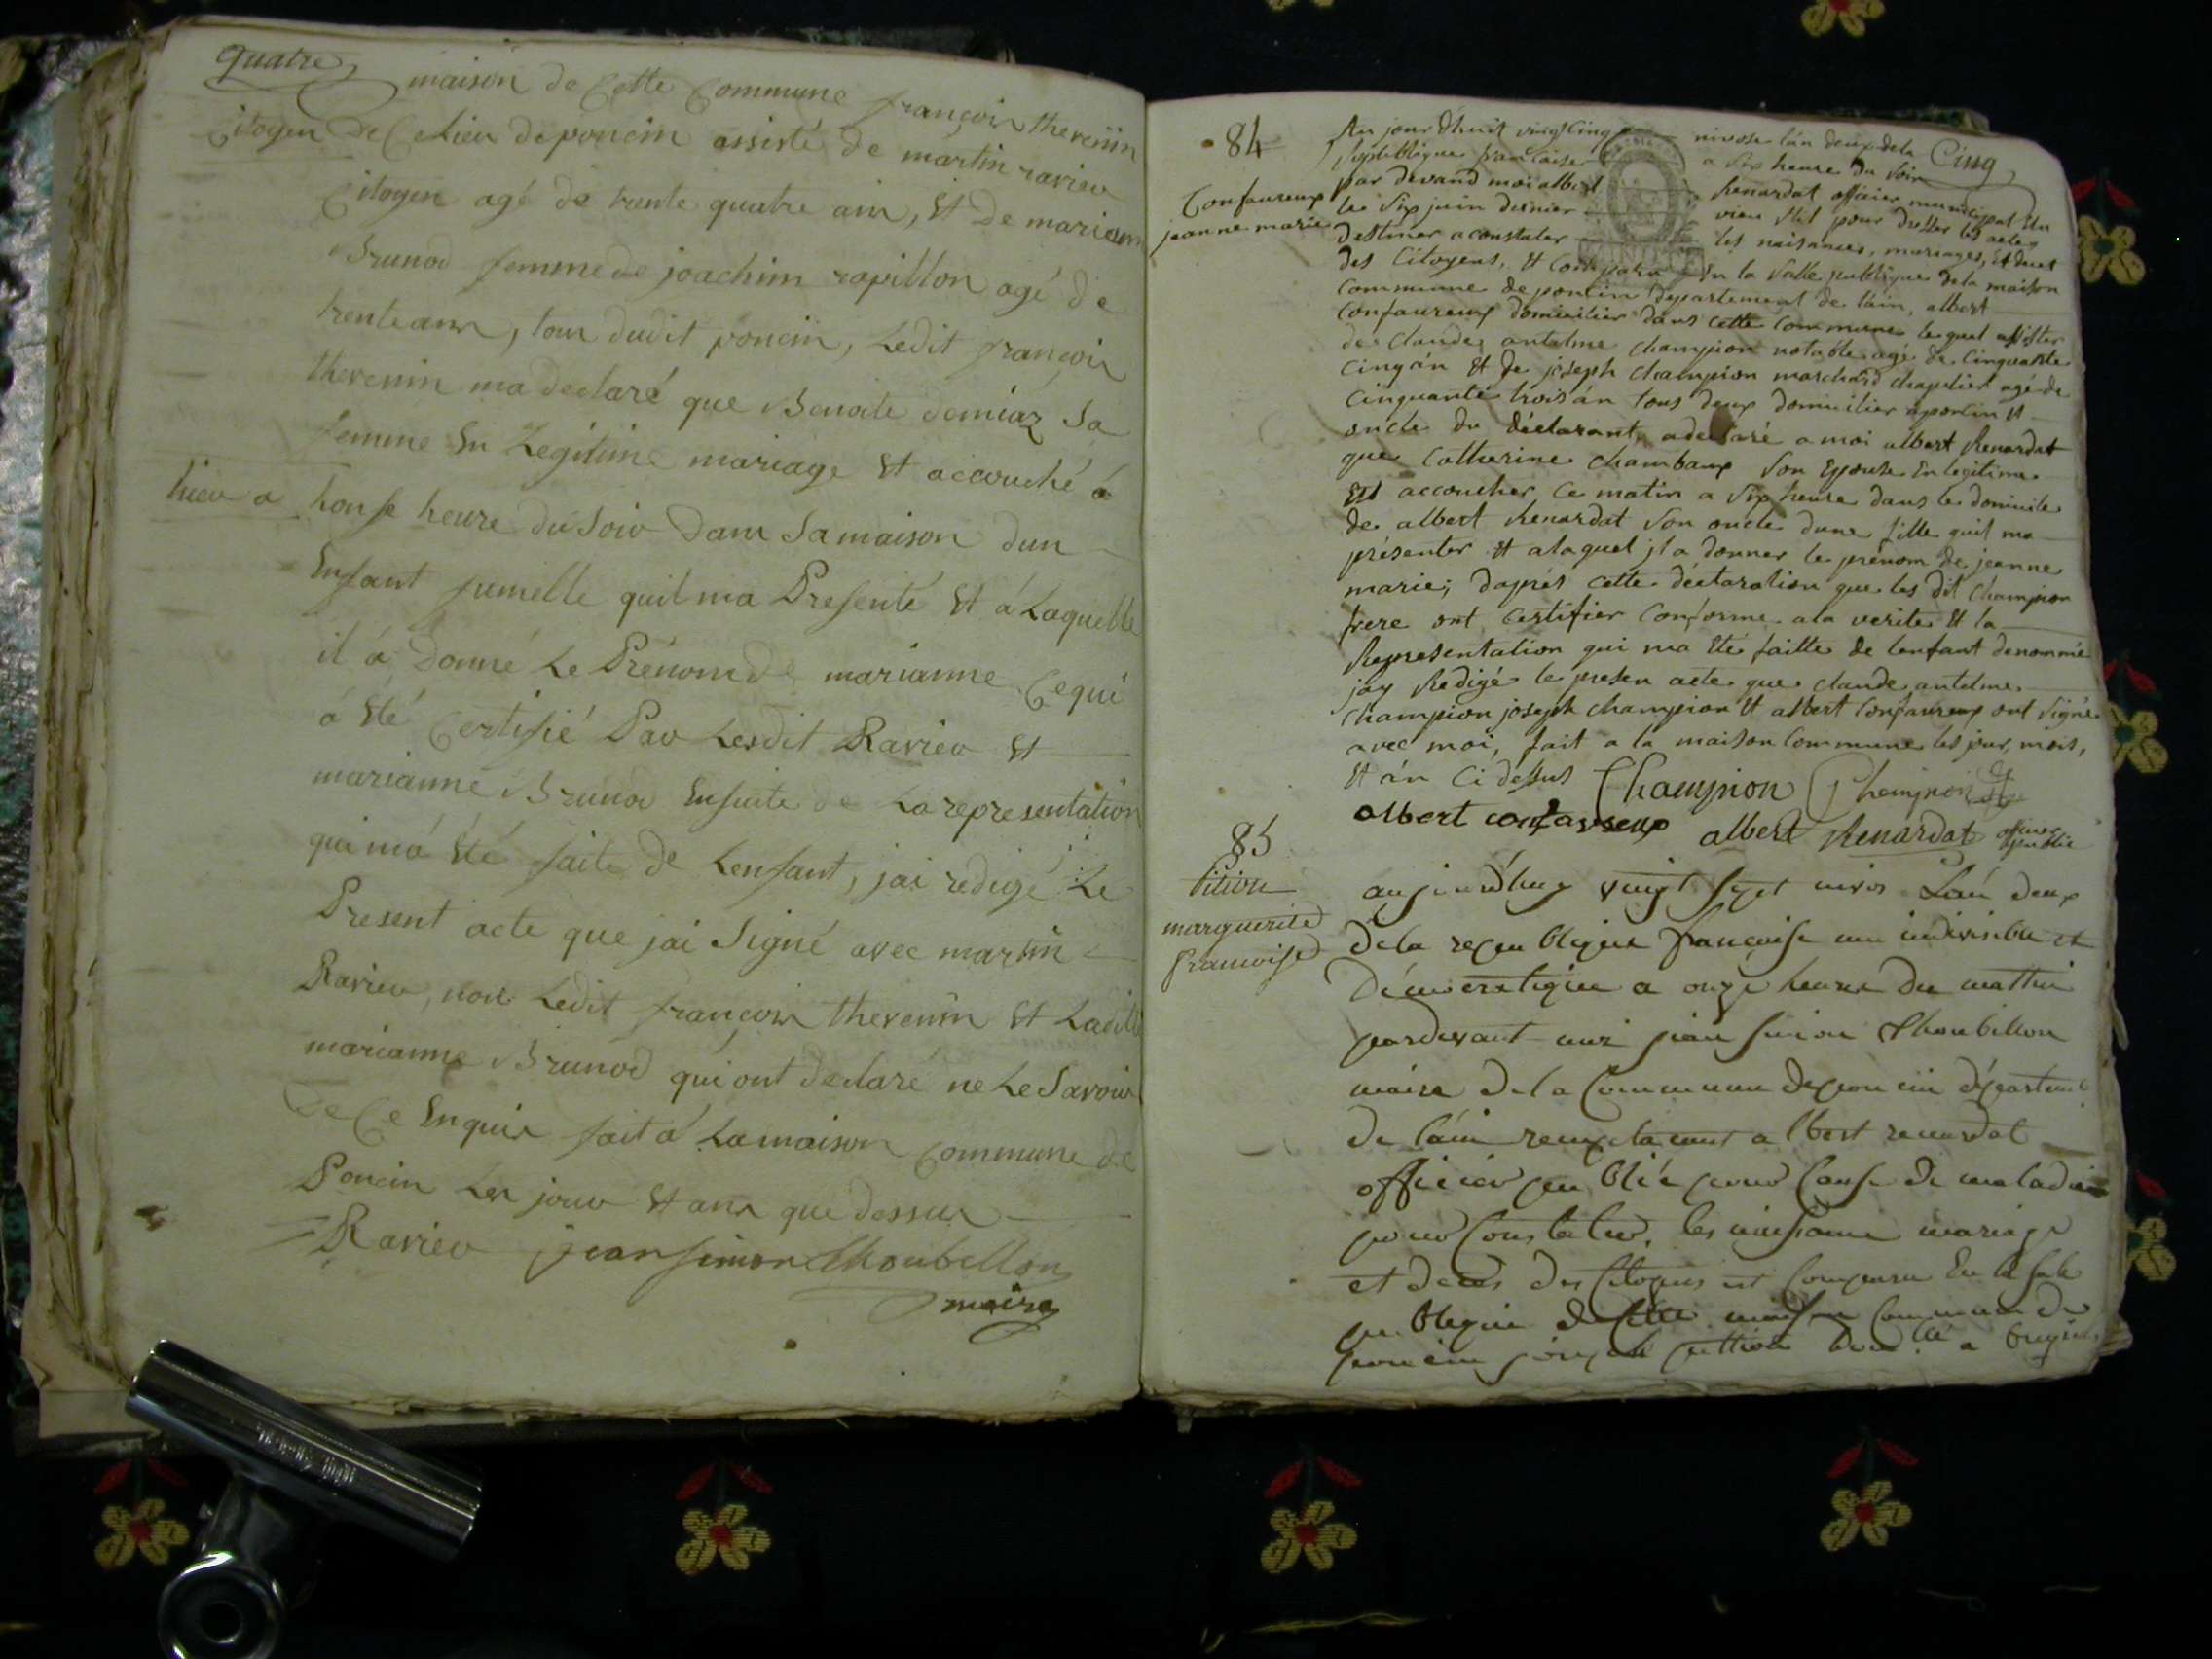 quatre
maison de Cette Commune françois thevenin
Citoyen de Ce Lieu de poncin assisté de martin ravieu
Citoyen agé de trente quatre ans, Et De marianne
Brunod femme de joachim rapillon agé de
trente ans, tous dudit poncin, Ledit françois
thevenin ma declaré que Benoite demiaz Sa
femme En Legitime mariage Et accouché á
hier a honse heure du Soir Dans Sa maison dun
Enfant fumelle quil ma Presenté Et á Laquelle
il á Donné Le Prénom de marianne Ce qui
á Eté Certifié Par Lesdit Ravieu Et
marianne Brunod Ensuite de La representation
qui má été faite de Lenfant, jai redigé Le
Present acte que jai Signé avec martin
Ravieu, non Ledit françois thevenin Et Ladite
marianne Brunod qui ont declaré ne Le Savoir
De Ce Enquis fait á La maison Commune de
Poncin Les jour Et ans que dessus
Ravieu jean simon Thoubillon
maire
Cinq
84
Confavreux
jeanne marie
Au jour d'huit vingt Cinq nivose l'an deux de la
République française a Six heure du Soir
par devand moi albert Renardat officier municipal Elu
le Six juin dernier pour dresser les actes
destiner a constater les naisances, mariages, Et
des Citoyens, Et Comparu En la Salle publique de la maison
Commune de poncin departement de lain, albert
Confavreux domicilier dans cette Commune lequel assister
de Claude antelme Champion notable agé de Cinquante
Cinq án Et de joseph Champion marchand Chapelier agé de
Cinquante trois án tous deux domicilier a poncin Et
oncle du déclarant, a declaré a moi albert Renardat
que Catherine Chambaux Son Epouse En legitime
Est accoucher Ce matin a Six heure dans le domicile
de albert Renardat Son oncle dune fille quil ma
présenter Et a laquel jl a donner le prénom de jeanne
marie; dáprés cette déclaration que les dit Champion
frere ont Certifier Conforme a la verite Et la
Representation qui ma Eté faitte de lenfant denommé
jay Redigé le presen acte que Claude antelme
Champion joseph Champion Et albert Confavreux ont Signé
avec moi, fait a la maison Commune les jour, mois,
Et án Ci dessus Champion J Champion
albert confavreux albert Renardat officier public
85
marguerite
francoise
aujourdhuy vingt sept nivos Lan deux
de la republique francoise une indivisible et
Démocratique a onze heures du mattin
pardevant moi jean simon Thoubillon
maire de la Commune de poncin départemt
de láin remplacant albert renardat
officier publié pour Cause de maladie
pour Constater, les naissance mariage
et deces des Citoyens est Comparu En la sale
publique de Cette maison Commune de
poncin joseph